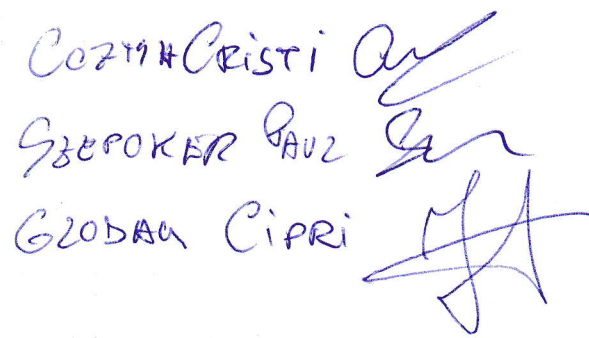 COZMA CRISTI
SZEPOKER PAUL
GLODAN CIPRI